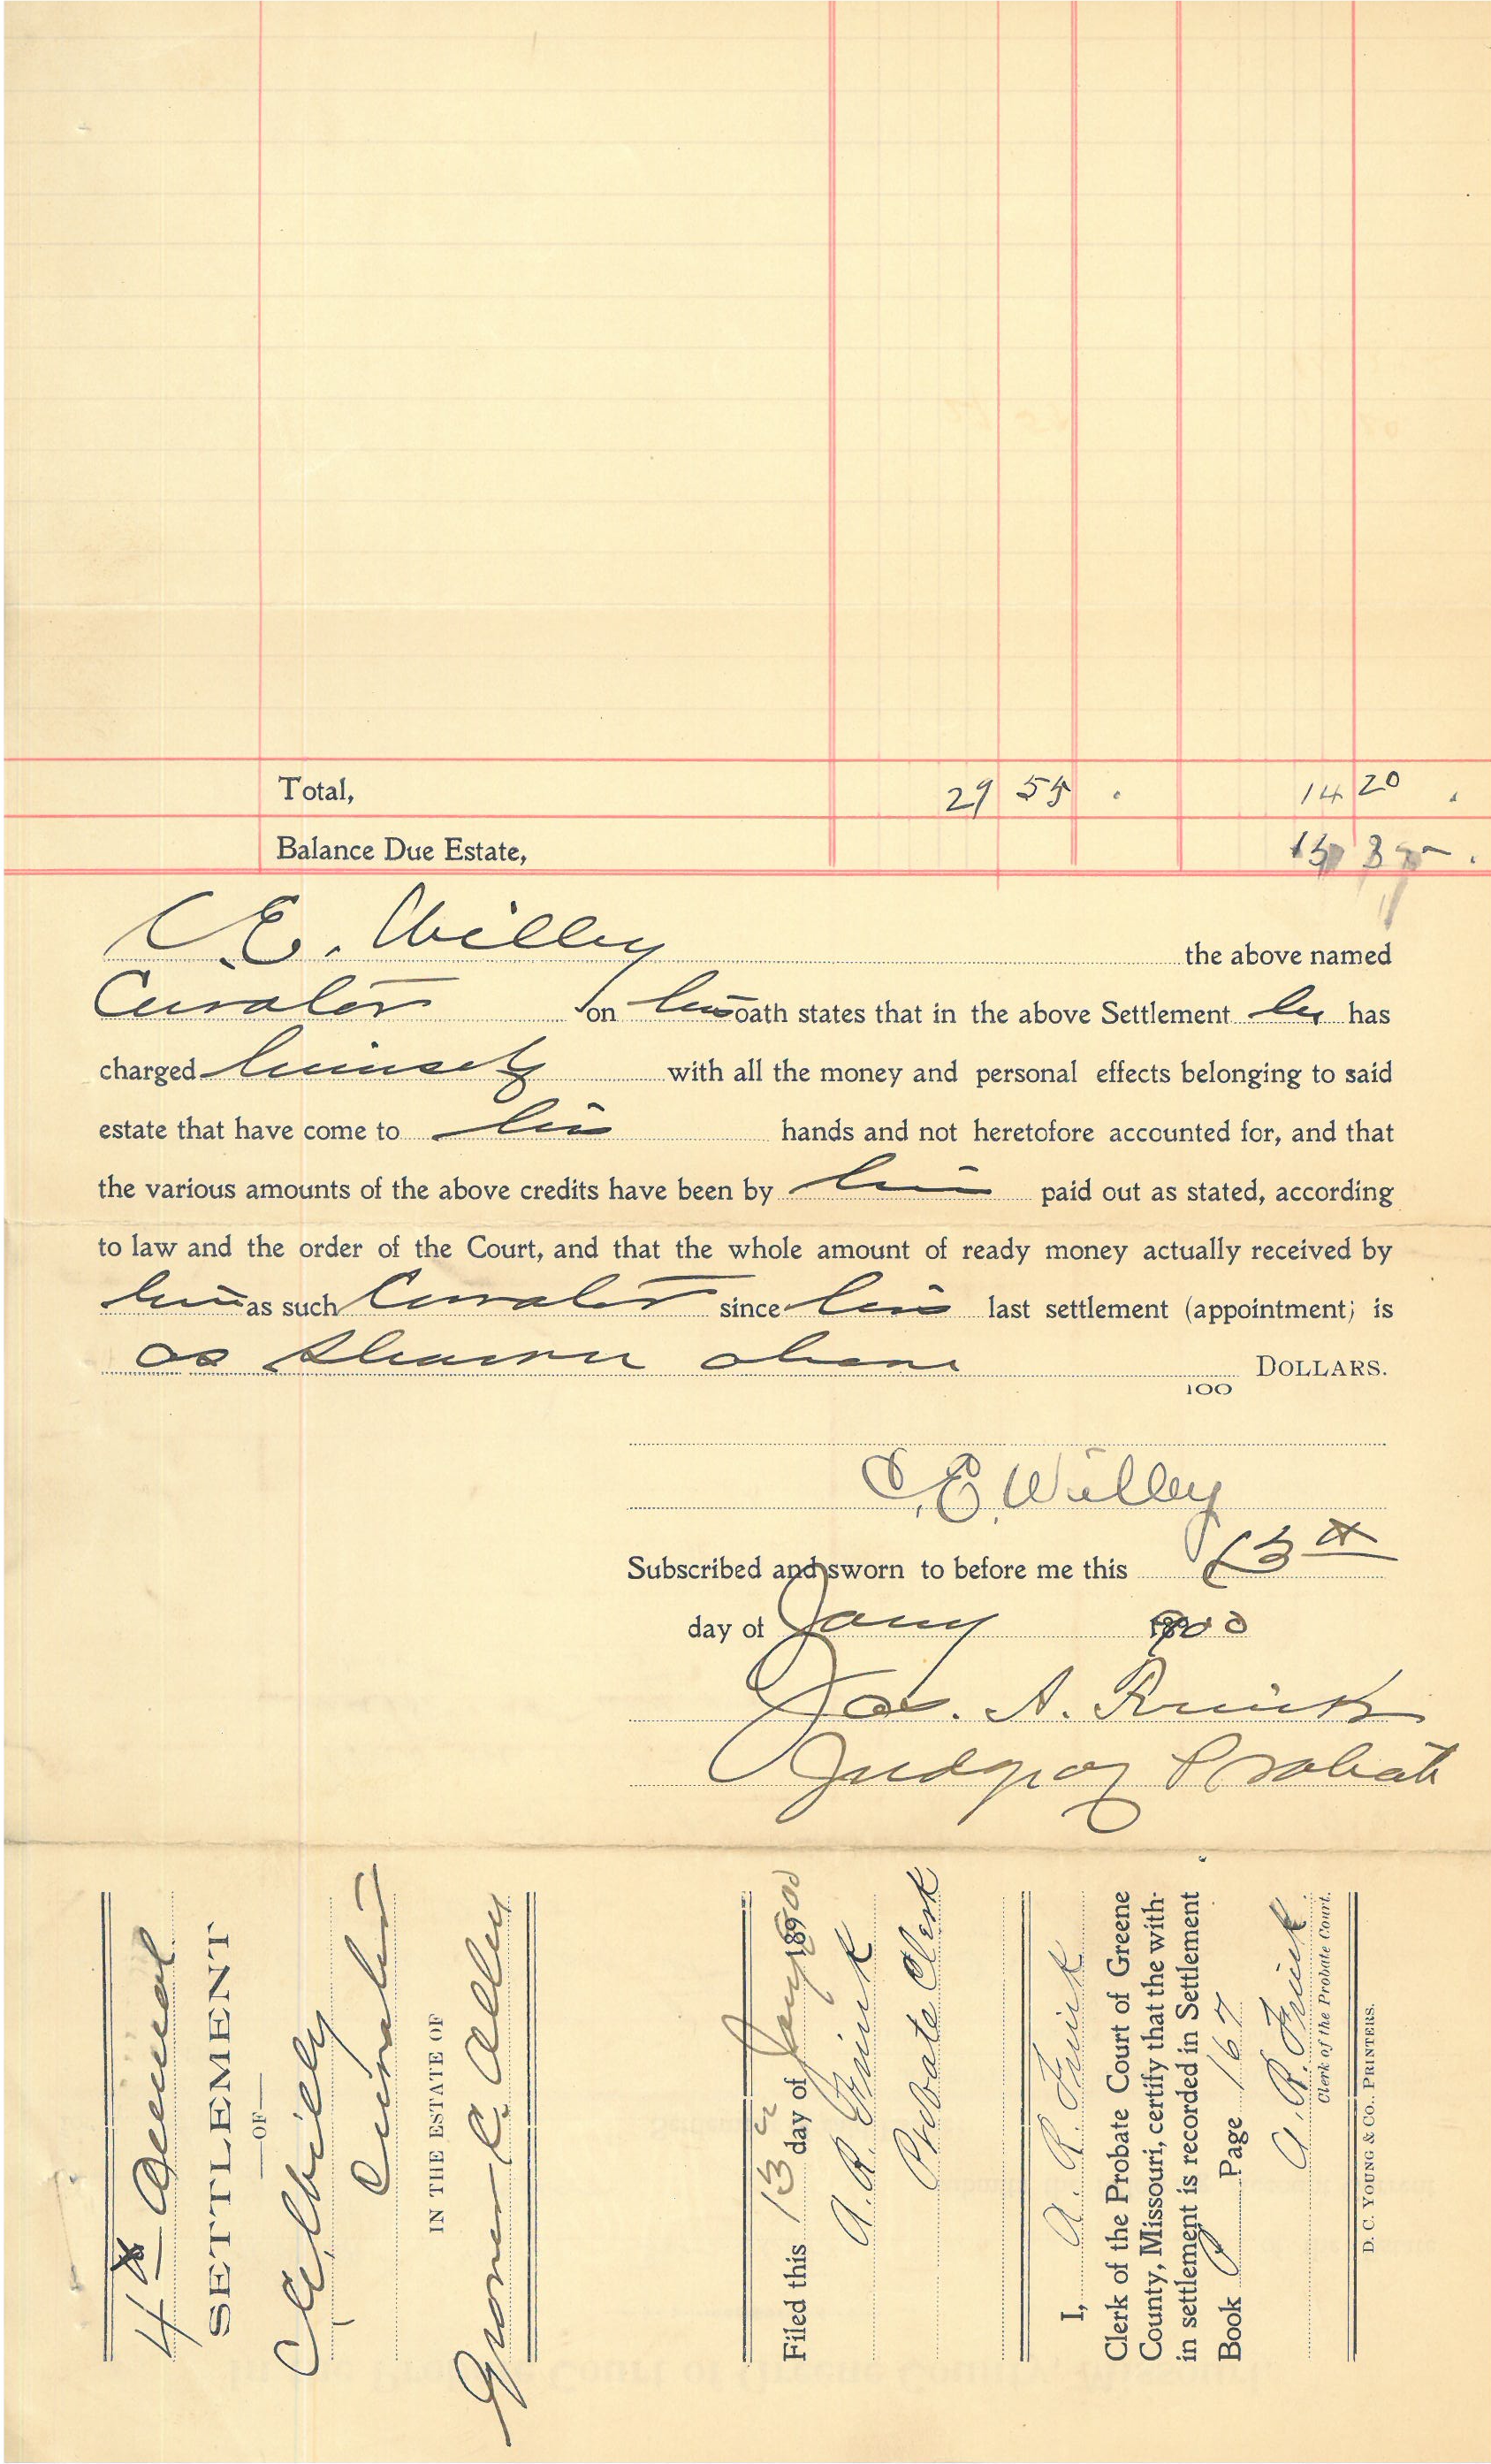 Total, 29 55 . 14 20 .
Balance Due Estate, 15 35 .
C. E. Willey the above named
Curator on his oath states that in the above Settlement he has
charged himself with all the money and personal effects belonging to said
estate that have come to his hands and not heretofore accounted for, and that
the various amounts of the above credits have been by him paid out as stated, according
to law and the order of the Court, and that the whole amount of ready money actually received by
him as such Curator since his last settlement (appointment) is
as shown above
100 DOLLARS.
C. E. Willey
Subscribed and sworn to before me this 13th
day of Jany 1900
Jas. A. Frink
Judge of Probate
4th Annual
SETTLEMENT
—OF—
C E Willey
Curator
IN THE ESTATE OF
C. Alley
Filed this 13 day of Jany 1900
A. R. Frink
Probate Clerk
I, A. R. Frink
Clerk of the Probate Court of Greene
County, Missouri, certify that the with-
in settlement is recorded in Settlement
Book Page 167
A. R. Frink
Clerk of the Probate Court.
D. C. YOUNG & CO., PRINTERS.